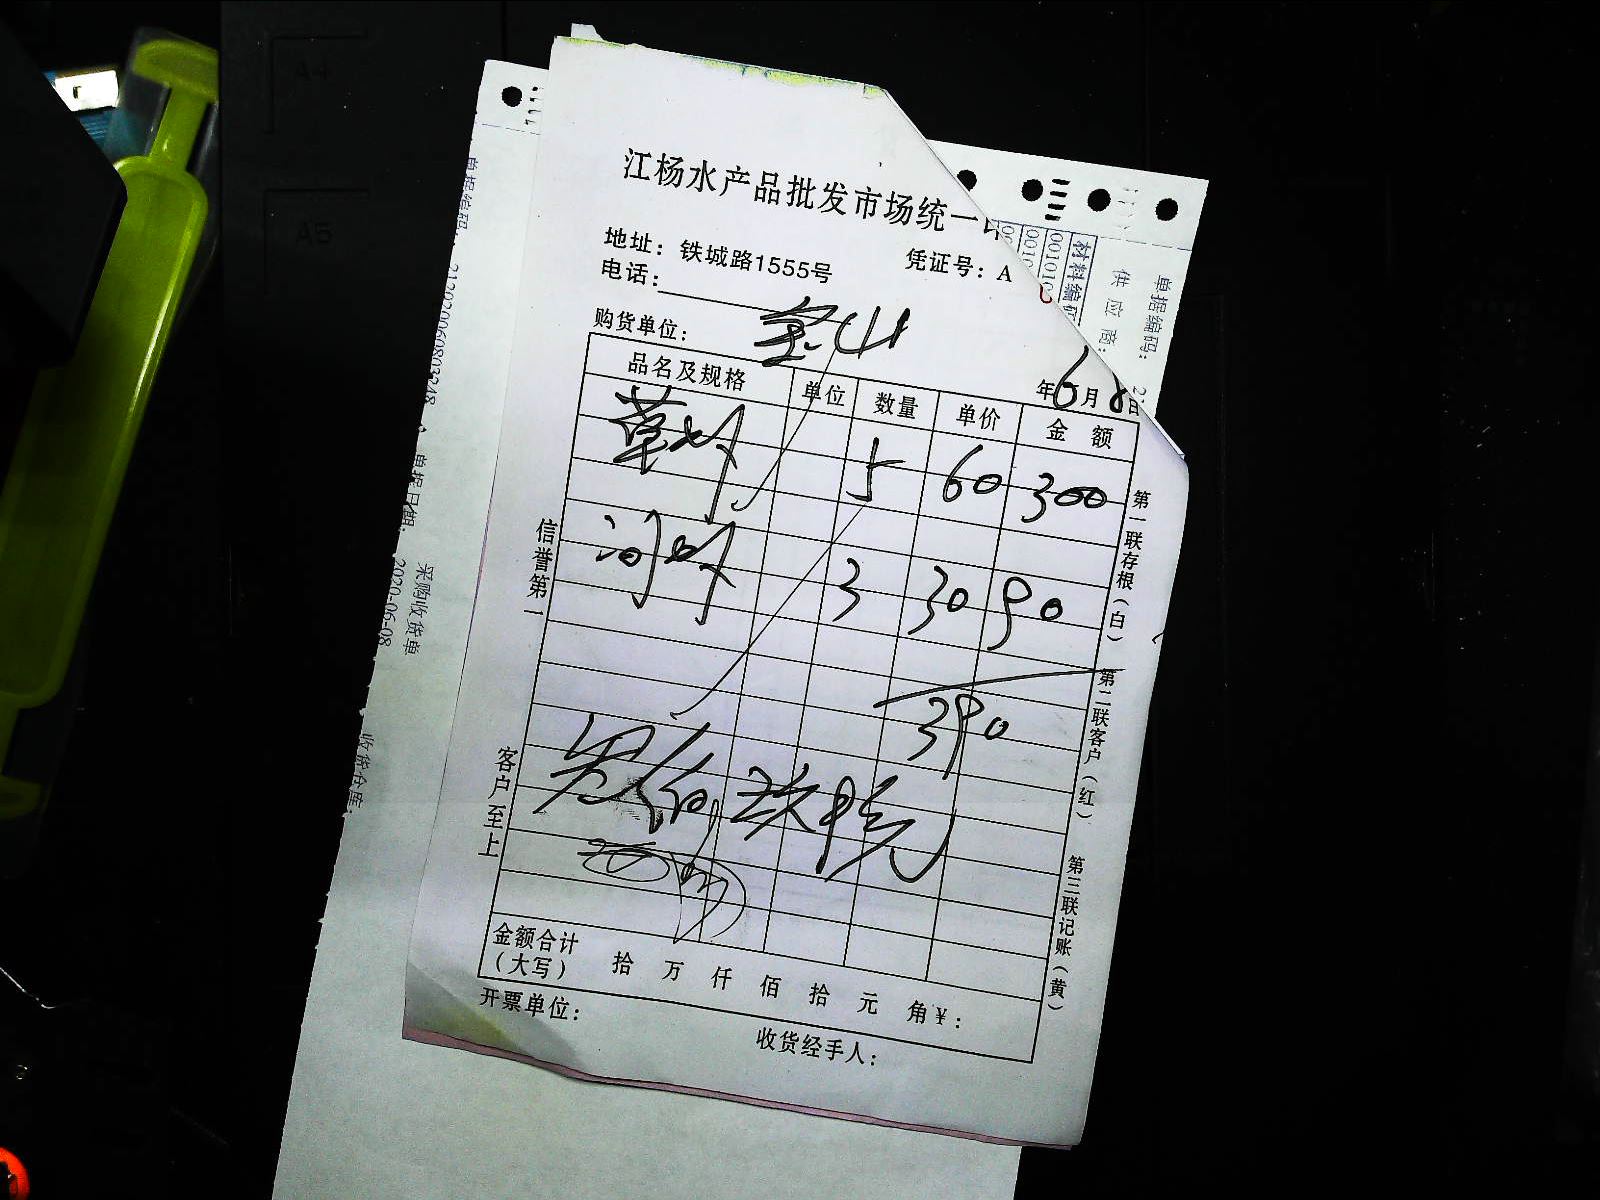 江杨水产品批发市场统一
地址：铁城路1555号
凭证号：A
电话：
购货单位：宝山
年6月8日
品名及规格 单位 数量 单价 金额
草虾 5 60 300
河虾 3 30 90
390
叁佰玖拾元
金额合计
（大写） 拾 万 仟 佰 拾 元 角 ¥：
开票单位：
收货经手人：
信誉第一
客户至上
第一联存根（白）
第二联客户（红）
第三联记账（黄）
材料编码
供应商：
单据编码：
采购收货单
单据编码：
单据日期： 2020-06-08
收货仓库：
A4
A5